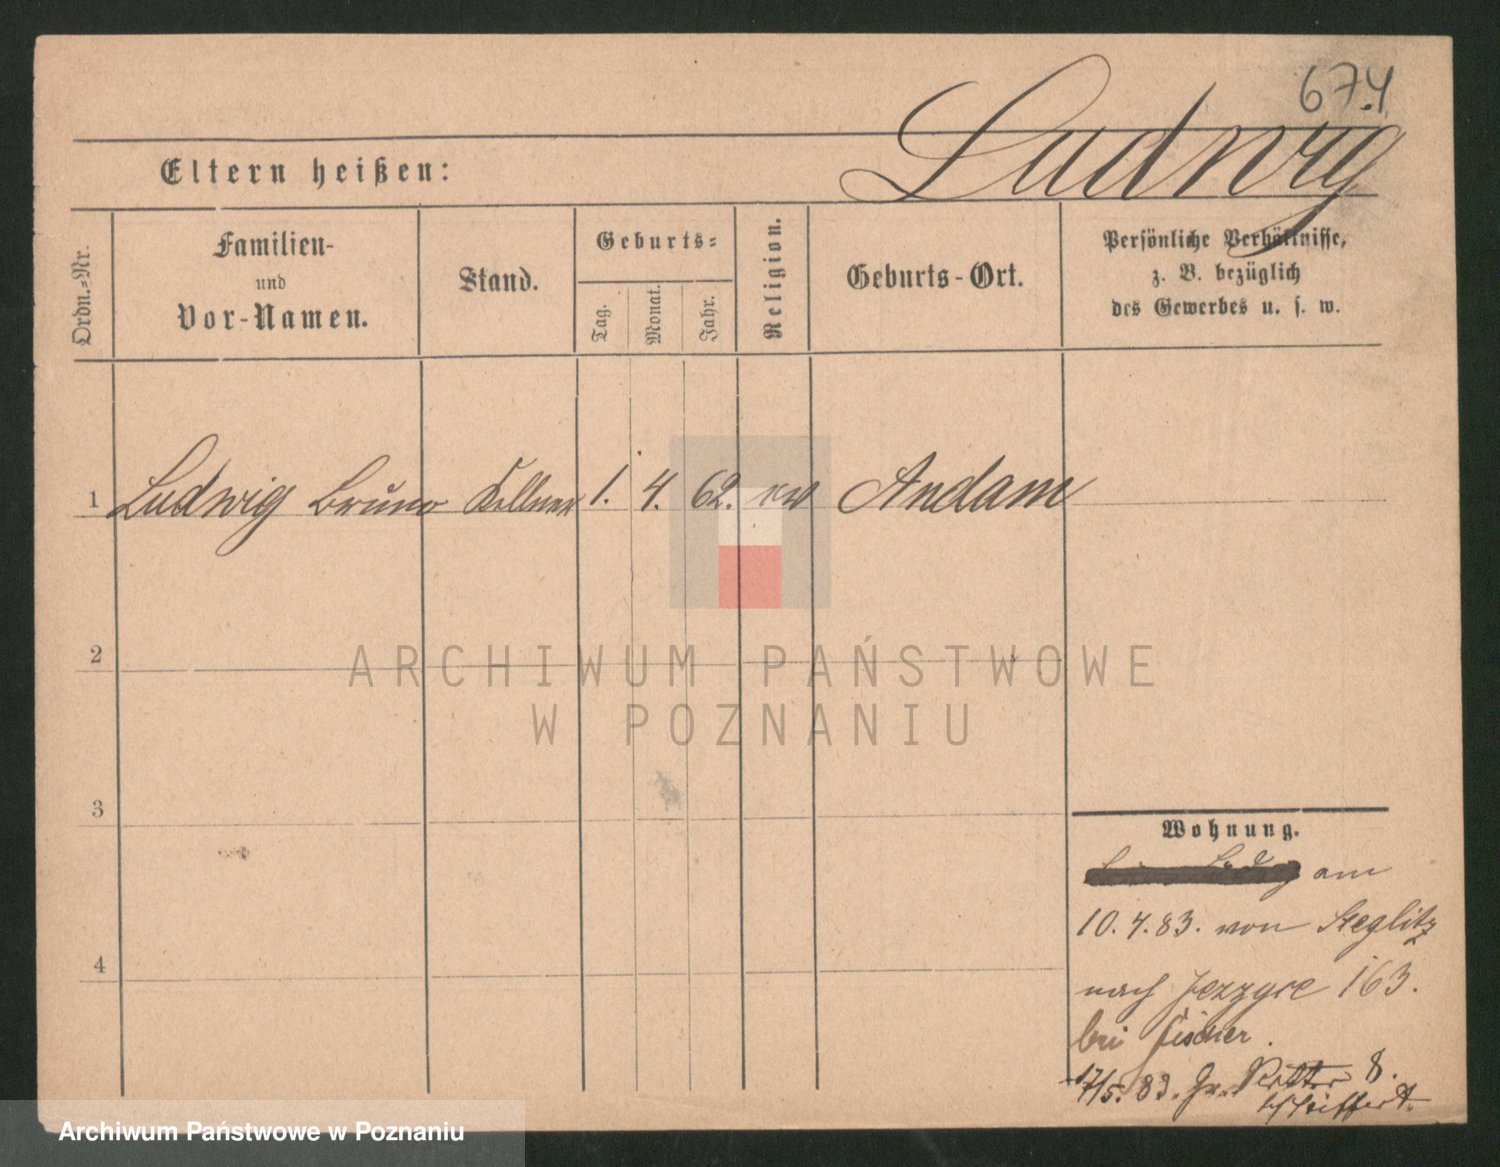 674
Ludwig
Eltern heißen:
Ordn.-Nr.
Familien-
und
Vor-Namen.
Stand.
Geburts-
Tag.
Monat.
Jahr.
Religion.
Geburts-Ort.
Persönliche Verhältnisse,
z. B. bezüglich
des Gewerbes u. s. w.
1 Ludwig Bruno Kellner 1. 4. 62. Andam
2
ARCHIWUM PAŃSTWOWE
W POZNANIU
3
4
Wohnung.
am
10. 4. 83. von Steglitz
nach 163.
bei Fischer.
17/5. 83. Gr. Ritter 8.
Archiwum Państwowe w Poznaniu